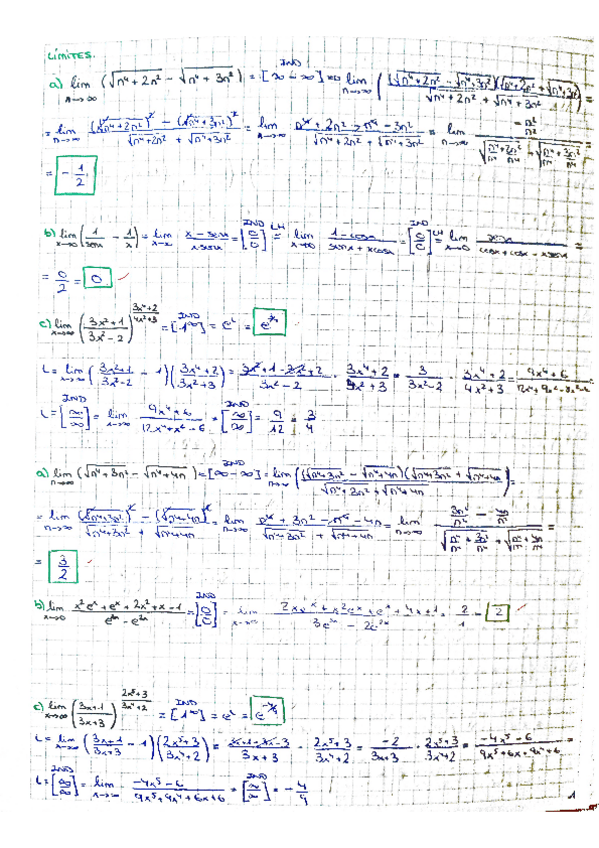 LÍMITES.
a) lim n→∞ (√n⁴+2n² − √n⁴+3n²) = [∞ − ∞] IND = lim n→∞ ((√n⁴+2n² − √n⁴+3n²)(√n⁴+2n² + √n⁴+3n²) / √n⁴+2n² + √n⁴+3n²) =
= lim n→∞ (√n⁴+2n²)² − (√n⁴+3n²)² / √n⁴+2n² + √n⁴+3n² = lim n→∞ n⁴+2n² − n⁴ − 3n² / √n⁴+2n² + √n⁴+3n² = lim n→∞ −n²/n² / √n⁴/n⁴+2n²/n⁴ + √n⁴/n⁴+3n²/n⁴ =
= −1/2
b) lim x→0 (1/senx − 1/x) = lim x − senx / x senx = [0/0] IND L'H = lim x→0 1 − cosx / senx + xcosx = [0/0] IND L'H = lim x→0 senx / cosx + cosx − xsenx =
= 0/2 = 0
c) lim x→∞ (3x²+1 / 3x²−2)^(3x⁴+2 / 4x²+3) = [1^∞] IND = e^L = e^¾
L = lim x→∞ (3x²+1 / 3x²−2 − 1)(3x⁴+2 / 3x²+3) = 3x²+1−3x²+2 / 3x²−2 · 3x⁴+2 / x²+3 = 3 / 3x²−2 · 3x⁴+2 / 4x²+3 = 9x⁴+6
L = [∞/∞] IND = lim x→∞ 9x⁴+6 / 12x⁴+x²−6 = [∞/∞] IND = 9/12 = 3/4
a) lim n→∞ (√n⁴+3n² − √n⁴+4n) = [∞ − ∞] IND = lim n→∞ ((√n⁴+3n² − √n⁴+4n)(√n⁴+3n² + √n⁴+4n) / √n⁴+3n² + √n⁴+4n) =
= lim n→∞ (√n⁴+3n²)² − (√n⁴+4n)² / √n⁴+3n² + √n⁴+4n = lim n→∞ n⁴+3n² − n⁴ − 4n / √n⁴+3n² + √n⁴+4n = lim 3n²/n² − 4n/n² / √n⁴/n⁴+3n²/n⁴ + √n⁴/n⁴+4n/n⁴ =
= 3/2
b) lim x→0 x²eˣ+eˣ+2x²+x−1 / e³ˣ−e²ˣ = [0/0] IND = lim 2xeˣ+x²eˣ+eˣ+4x+1 / 3e³ˣ−2e²ˣ = 2/1 = 2
c) lim x→∞ (3x+1 / 3x+3)^(2x⁵+3 / 3x⁴+2) = [1^∞] IND = e^L
L = lim x→∞ (3x+1 / 3x+3 − 1)(2x⁵+3 / 3x⁴+2) = 3x+1−3x−3 / 3x+3 · 2x⁵+3 / 3x⁴+2 = −2 / 3x+3 · 2x⁵+3 / 3x⁴+2 = −4x⁵−6 / 9x⁵+6x+9x⁴+6 =
L = [∞/∞] IND = lim x→∞ −4x⁵−6 / 9x⁵+9x⁴+6x+6 = [∞/∞] IND = −4/9
1